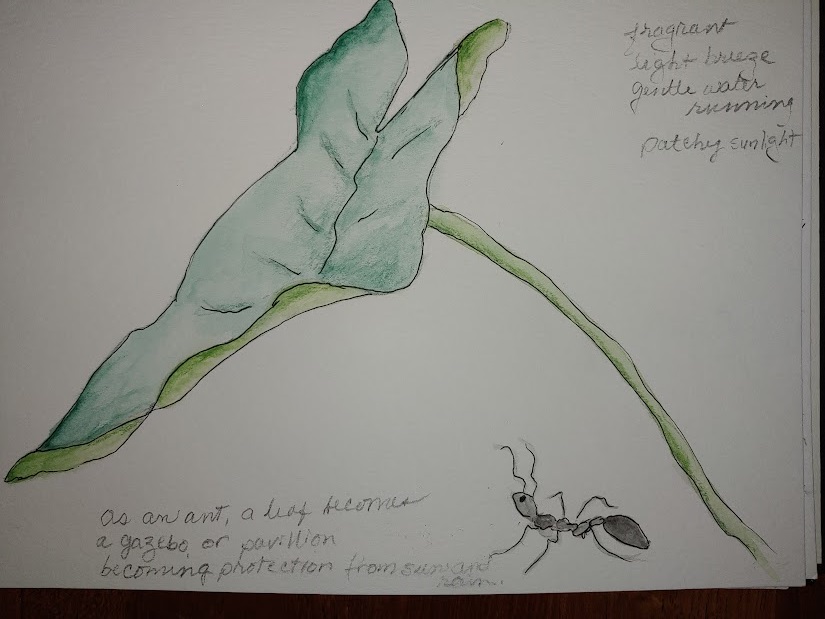 fragrant
light breeze
gentle water
running
patchy sunlight
As an ant, a leaf becomes
a gazebo, or pavillion
becoming protection from sun and
rain.